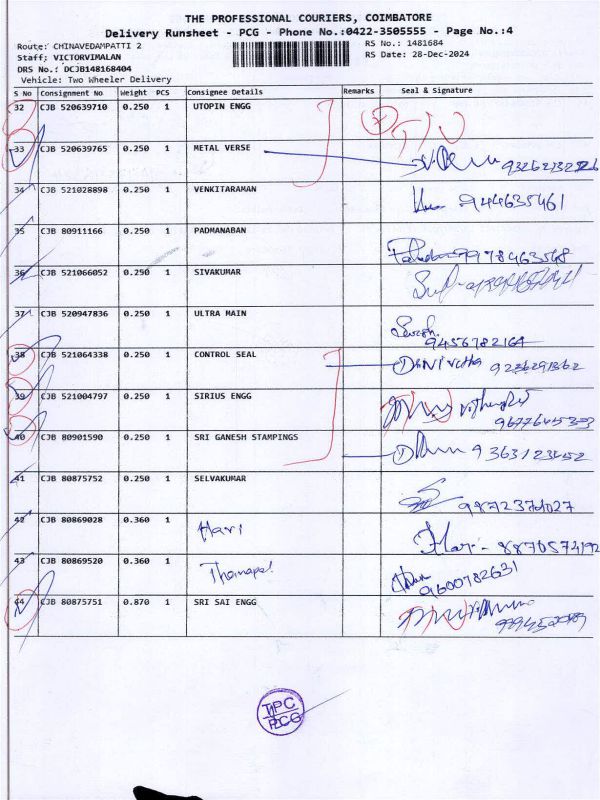 THE PROFESSIONAL COURIERS, COIMBATORE
Delivery Runsheet - PCG - Phone No.:0422-3505555 - Page No.:4
Route: CHINAVEDAMPATTI 2 RS No.: 1481684
Staff; VICTORVIMALAN RS Date: 28-Dec-2024
DRS No.: DCJB148168404
Vehicle: Two Wheeler Delivery
S No Consignment No Weight PCS Consignee Details Remarks Seal & Signature
32 CJB 520639710 0.250 1 UTOPIN ENGG
33 CJB 520639765 0.250 1 METAL VERSE
34 CJB 521028898 0.250 1 VENKITARAMAN 944635461
35 CJB 80911166 0.250 1 PADMANABAN
36 CJB 521066052 0.250 1 SIVAKUMAR
37 CJB 520947836 0.250 1 ULTRA MAIN 9456782164
38 CJB 521064338 0.250 1 CONTROL SEAL 9236291362
39 CJB 521004797 0.250 1 SIRIUS ENGG
40 CJB 80901590 0.250 1 SRI GANESH STAMPINGS 9363123452
41 CJB 80875752 0.250 1 SELVAKUMAR
42 CJB 80869028 0.360 1 Hari Hari - 8870574192
43 CJB 80869520 0.360 1 9600782631
44 CJB 80875751 0.870 1 SRI SAI ENGG
TPC
PCG